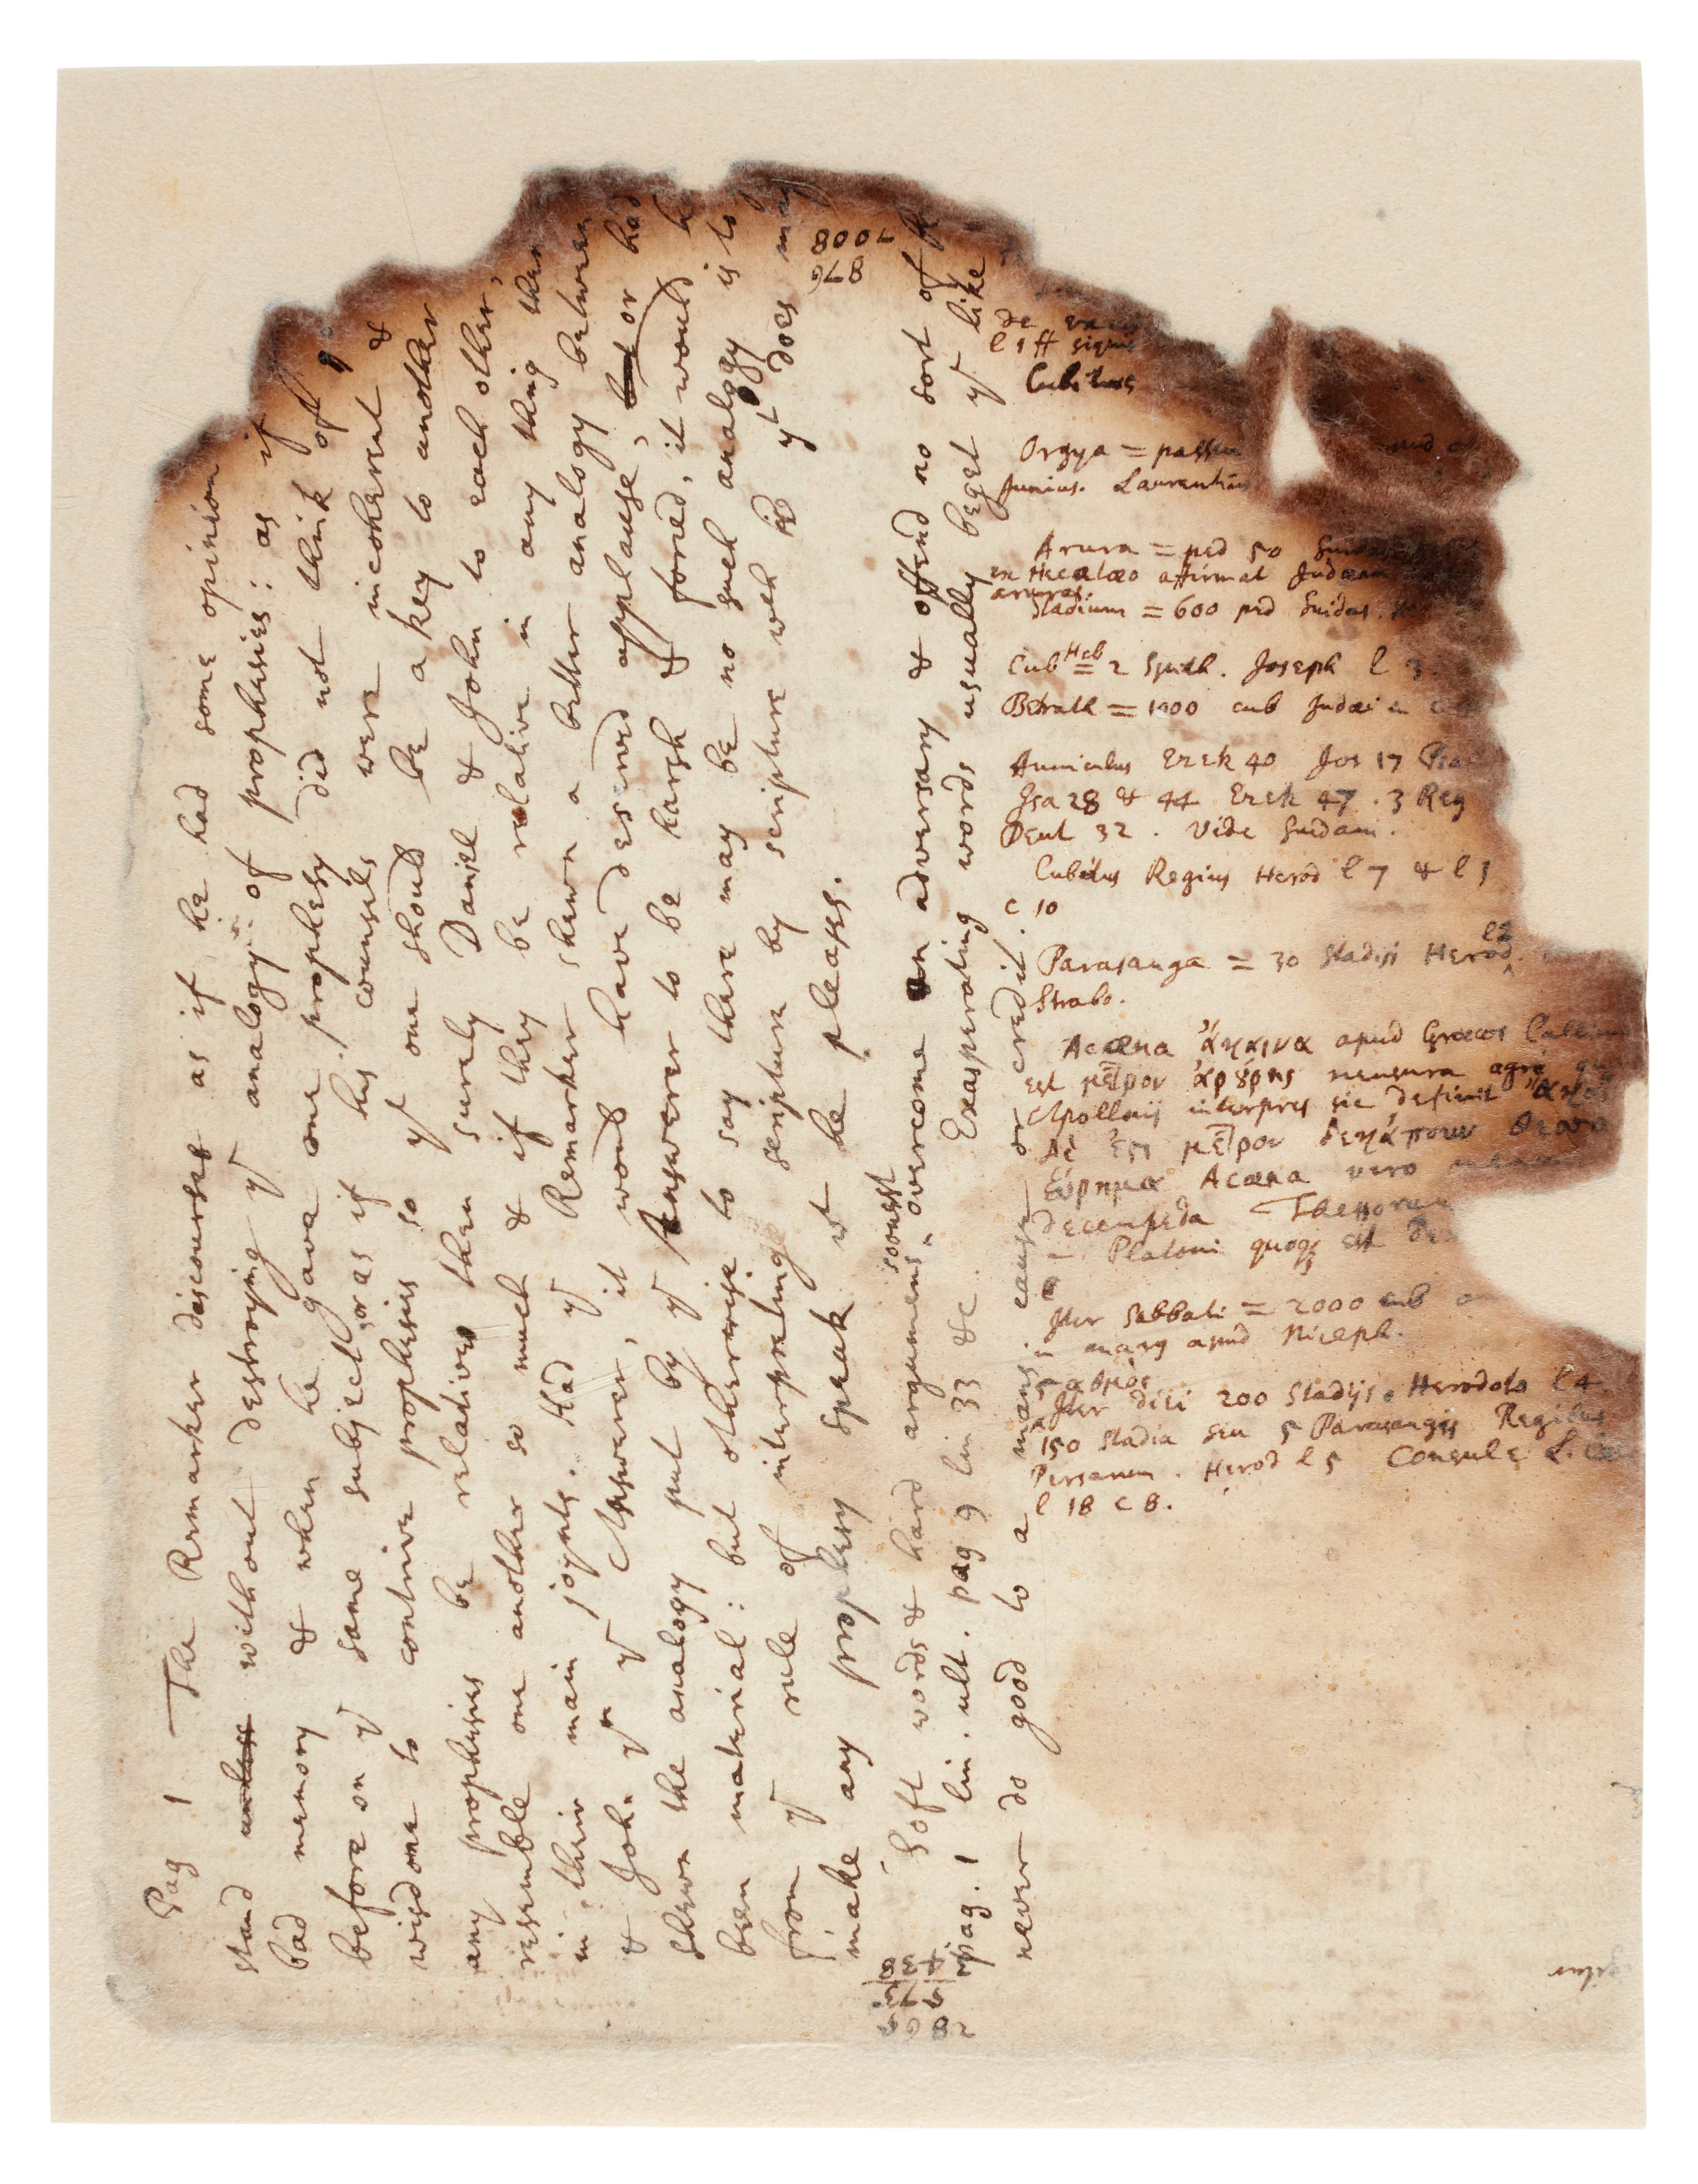 Pag 1 The Remarker discourses as if he had some opinion
stand unless without destroying yͤ analogy of prophesies: as if
bad memory & when he gave one prophesy did not think of
before on yͤ same subject, or as if his counsels were incoherent &
wisdome to contrive prophesies so yͭ one should be a key to another
any prophesies be relatives then surely Daniel & John to each other,
resemble one another so much & if they be relative in any thing then
in their main joynts. Had yͤ Remarker shewn a better analogy between
& John yⁿ yͤ Answerer, it would have deserved applause, but or had
shewn the analogy put by yͤ Answerer to be harsh & forced, it would
been material: but otherwise to say there may be no such analogy is to
from yͤ rule of interpreting scripture by scripture wch yͭ does may
make any prophesy speak wͭ he pleases.
7008
876
soonest
Soft words & hard arguments overcome an adversary & offend no sort of
pag. 1 lin. ult. pag 9 lin 33 &c. Exasperating words usually beget yͤ like
never do good to a mans cause or credit.
438
2869
de
l 5 ff
Cubitus
Orgya = passu
Junius. Laurentius
Arura = ped 50 Suidas
ex Hecatæo affirmat Judæam
aruras.
Stadium = 600 ped Suidas.
Cub Heb = 2 Spith. Joseph l 3.
Betrath = 1000 cub Judæi
Funiculus Ezek 40 Jos 17 Psal
Isa 28 & 44 Ezek 47. 3 Reg
Deut 32. Vide Suidam.
Cubitus Regius Herod l 7 & l 1
c 10
Parasanga = 30 Stadiji Herod. l 2
Strabo.
Acæna ἄκαινα apud Græcos Callim
est μέτρον ἀρούρης mensura agri
Apollonij interpres sic definit
δέ ἐστι μέτρον δεκάπουν
Εὕρημα Acæna vero
decempeda Thessorum
Platoni quoqꝫ est
Iter Sabbati = 2000 cub
in marg apud Niceph.
σταθμὸς
Iter diei 200 Stadijs Herodoto l 4
150 Stadia seu 5 Parasangis Regibus
Persarum. Herod l 5 Consule L.
l 18 c 8.